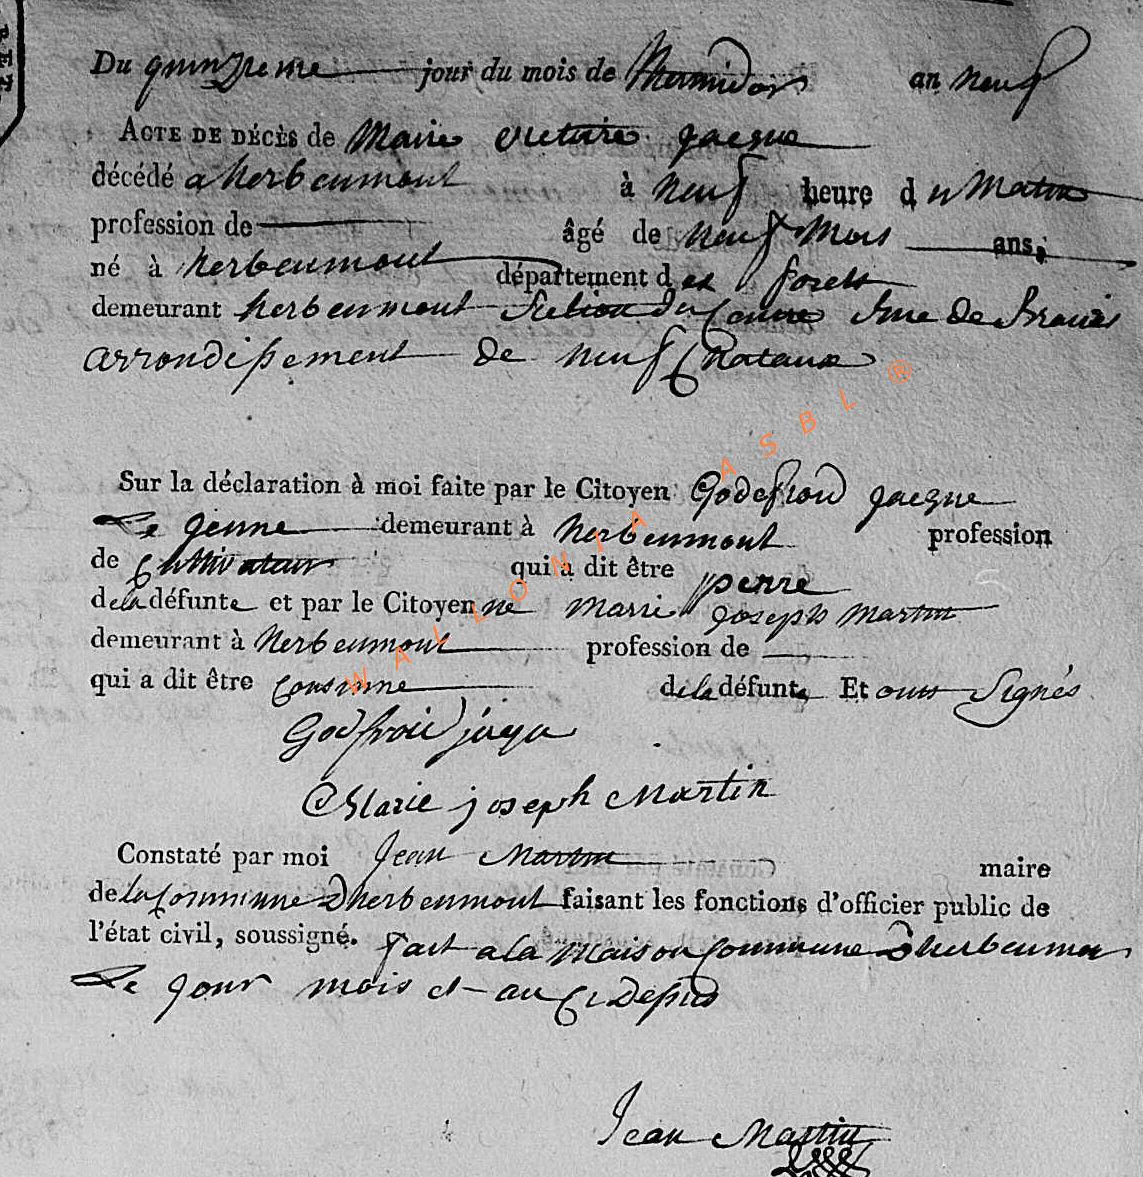 Du quinzieme jour du mois de Thermidor an neuf
ACTE DE DÉCÈS de Marie Victoire Jacque
décédé a herbeumont à neuf heure du Matin
profession de âgé de neuf Mois ans,
né à herbeumont département des forets
demeurant herbeumont
arrondissement de neufchateaux
Sur la déclaration à moi faite par le Citoyen Godefroid Jacque
Le Jeune demeurant à herbeumont profession
de Cultivateur qui a dit être perre
de la défunte et par le Citoyenne Marie Joseph Martin
demeurant à herbeumont profession de
qui a dit être Cousinne de la défunte Et onts Signés
Godfroid jaque
Marie joseph Martin
Constaté par moi Jean Martin maire
de la Commune Dherbeumont faisant les fonctions d'officier public de
l'état civil, soussigné. fait a la Maison Commune Dherbeumon
Le Jour mois et an
Jean Martin
WALLONIA ASBL ®